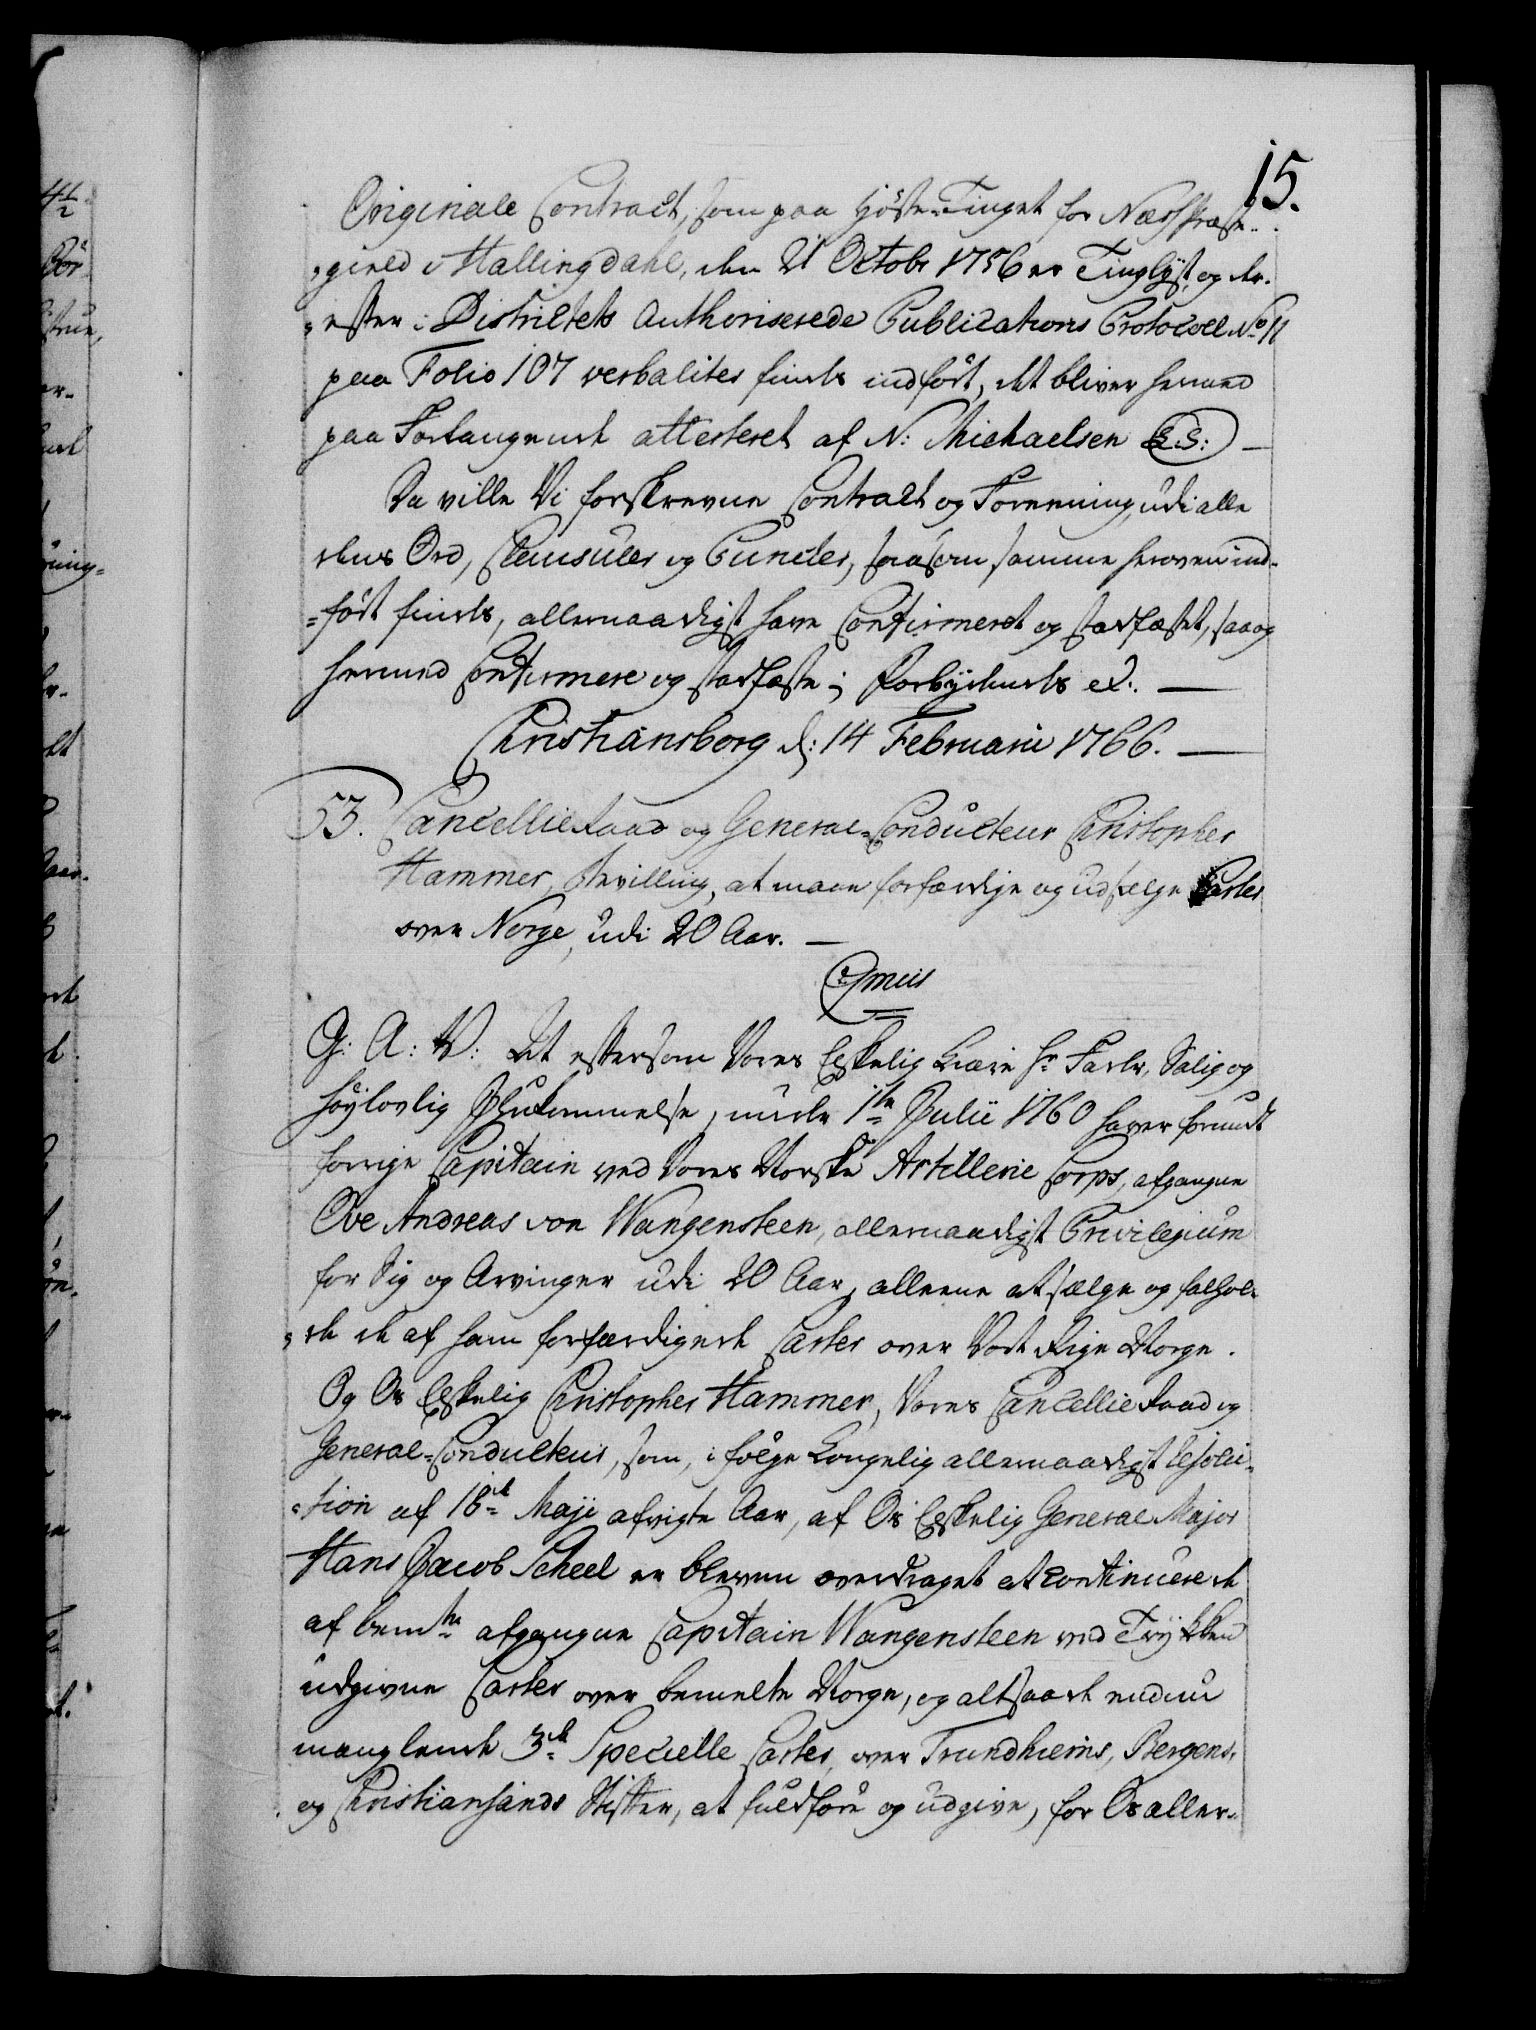 15.
Originale Contract, som paa Höste-Tinget for Næss Præste-
-gield i Hallingdahl, den 21 Octobr 1756 er Tinglyst, og der-
-efter i Districtets Authoriserede Publications Protocoll No 11
paa Folio 107 verbaliter findes indfört, det bliver hermed
paa Forlangende attesteret af N: Michaelsen (L.S:) —
Da ville Vi forskrevne Contract og Foreening, udi alle
dens Ord, Clausuler og Puncter, saasom samme heroven ind-
-fört findes, allernaadigst have Confirmeret og stadfæstet, saa og
hermed Confirmere og stadfæste; Forbydendes etc. —
Christiansborg d: 14 Februarii 1766. —
53. Cancellieraad og General-Conducteur Christopher
Hammer, Bevilling, at maae forfærdige og udsælge Carter
over Norge, udi 20 Aar. —
G: A: V: At eftersom Vores Elskelig kiære Hr Fader, Salig og
höylovlig Ihukommelse, under 1te Julii 1760 haver forundt
forrige Capitain ved Vores Norske Artillerie Corps, afgangne
Ove Andreas von Wangensteen, allernaadigst Privilegium
for Sig og Arvinger udi 20 Aar, alleene at sælge og falhol-
-de de af ham forfærdigede Carter over Vort Rige Norge.
Og Os Elskelig Christopher Hammer, Vores Cancellieraad og
General-Conducteur, som, i fölge Kongelig allernaadigst Resolu-
-tion af 18de Maji afvigte Aar, af Os Elskelig General Major
Hans Jacob Scheel er bleven overdraget at continuere de
af bemte afgangne Capitain Wangensteen ved Trykken
udgivne Carter over bemelte Norge, og altsaa de endnu
manglende 3de Specielle Carter, over Trundhiems, Bergens,
og Christiansands Stifter, at fuldföre og udgive, for Os aller-